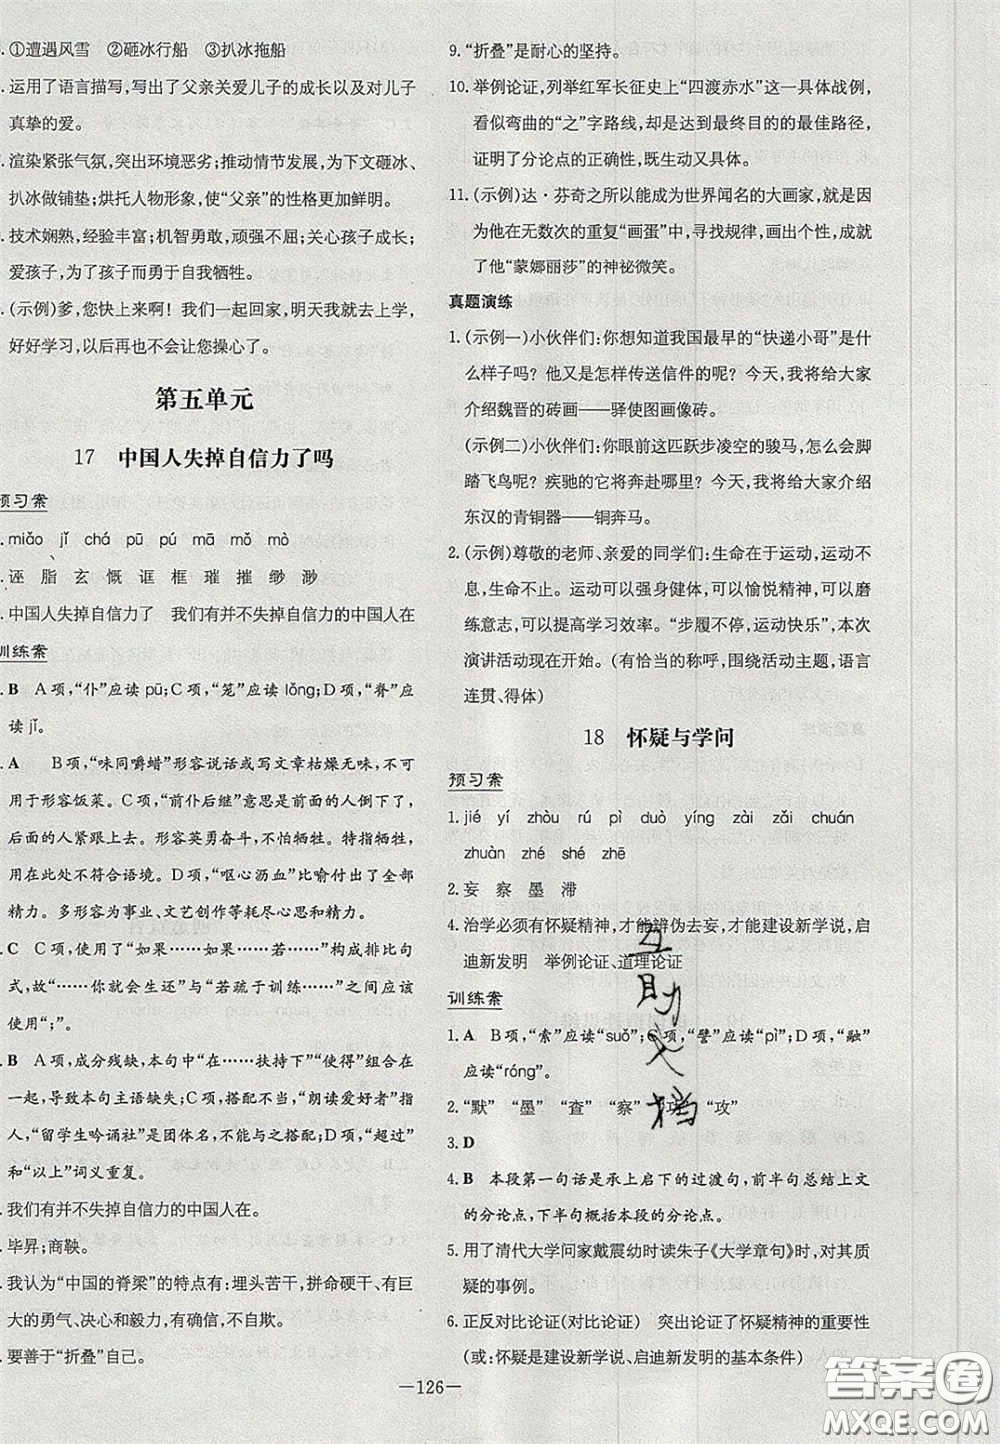 ①遭遇风雪　②砸冰行船　③扒冰拖船
运用了语言描写,写出了父亲关爱儿子的成长以及对儿子
真挚的爱。
渲染紧张气氛,突出环境恶劣;推动情节发展,为下文砸冰、
扒冰做铺垫;烘托人物形象,使“父亲”的性格更加鲜明。
技术娴熟,经验丰富;机智勇敢,顽强不屈;关心孩子成长;
爱孩子,为了孩子勇于自我牺牲。
(示例)爹,您快上来啊! 我们一起回家,明天我就去上学,
好好学习,以后再也不会让您操心了。
第五单元
17　中国人失掉自信力了吗
预习案
miǎo　jǐ　chá　pū　pú　mā　mǒ　mò
诬　脂　玄　慨　诓　框　璀　摧　缈　渺
中国人失掉自信力了　我们有并不失掉自信力的中国人在
训练案
B　A项,“仆”应读 pū;C项,“笼”应读 lǒng;D项,“脊”应
读 jǐ。
A　B项,“味同嚼蜡”形容说话或写文章枯燥无味,不可
用于形容饭菜。C项,“前仆后继”意思是前面的人倒下了,
后面的人紧跟上去。形容英勇奋斗,不怕牺牲。特指牺牲,
用在此处不符合语境。D项,“呕心沥血”比喻付出了全部
精力。多形容为事业、文艺创作等耗尽心思和精力。
C　C项,使用了“如果……如果……若……”构成排比句
式,故“……你就会生还”与“若疏于训练……”之间应该
使用“;”。
B　A项,成分残缺,本句中“在……扶持下”“使得”组合在
一起,导致本句主语缺失;C项,搭配不当,“朗读爱好者”指
人,“留学生吟诵社”是团体名,不能与之搭配;D项,“超过”
和“以上”词义重复。
我们有并不失掉自信力的中国人在。
毕昇;商鞅。
我认为“中国的脊梁”的特点有:埋头苦干,拼命硬干,有巨
大的勇气、决心和毅力,有确信,不自欺。
要善于“折叠”自己。
9.“折叠”是耐心的坚持。
10.举例论证,列举红军长征史上“四渡赤水”这一具体战例,
看似弯曲的“之”字路线,却是达到最终目的的最佳路径,
证明了分论点的正确性,既生动又具体。
11.(示例)达·芬奇之所以能成为世界闻名的大画家,就是
因为他在无数次的重复“画蛋”中,寻找规律,画出个性,成
就了他“蒙娜丽莎”的神祕微笑。
真题演练
1.(示例一)小伙伴们:你想知道我国最早的“快递小哥”是什
么样子吗? 他又是怎样传送信件的呢? 今天,我将给大家
介绍魏晋的砖画——驿使图画像砖。
(示例二)小伙伴们:你眼前这匹跃步凌空的骏马,怎么会脚
踏飞鸟呢? 疾驰的它将要奔赴哪里? 今天,我将给大家介绍
东汉的青铜器——铜奔马。
2.(示例)尊敬的老师、亲爱的同学们:生命在于运动,运动不
息,生命不止。运动可以强身健体,可以愉悦精神,可以磨
练意志,可以提高学习效率。“步履不停,运动快乐”,本次
演讲活动现在开始。(有恰当的称呼,围绕活动主题,语言
连贯、得体)
18　怀疑与学问
预习案
1.jié　yí　zhòu　rú　pì　duò　yíng　zài　zǎi　chuán
zhuàn　zhé　shé　zhē
2.妄　察　墨　滞
4.治学必须有怀疑精神,才能辨伪去妄,才能建设新学说,启
迪新发明　举例论证、道理论证
训练案
1.A　B项,“索”应读“suǒ”;C项,“譬”应读“pì”;D项,“融”
应读“róng”。
2.“默”　“墨”　“查”　“察”　“攻”
3.D
4.B　本段第一句话是承上启下的过渡句,前半句总结上文
的分论点,下半句概括本段的分论点。
5.用了清代大学问家戴震幼时读朱子《大学章句》时,对其质
疑的事例。
6.正反对比论证(对比论证)　突出论证了怀疑精神的重要性
(或:怀疑是建设新学说、启迪新发明的基本条件)
—126—
互助文档
答案圈
MXQE.COM